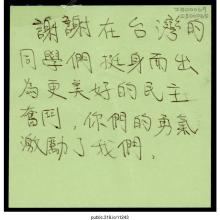 謝謝在台灣的
同學們挺身而出
為更美好的民主
奮鬥，你們的勇氣
激勵了我們.
public.318.io/11243